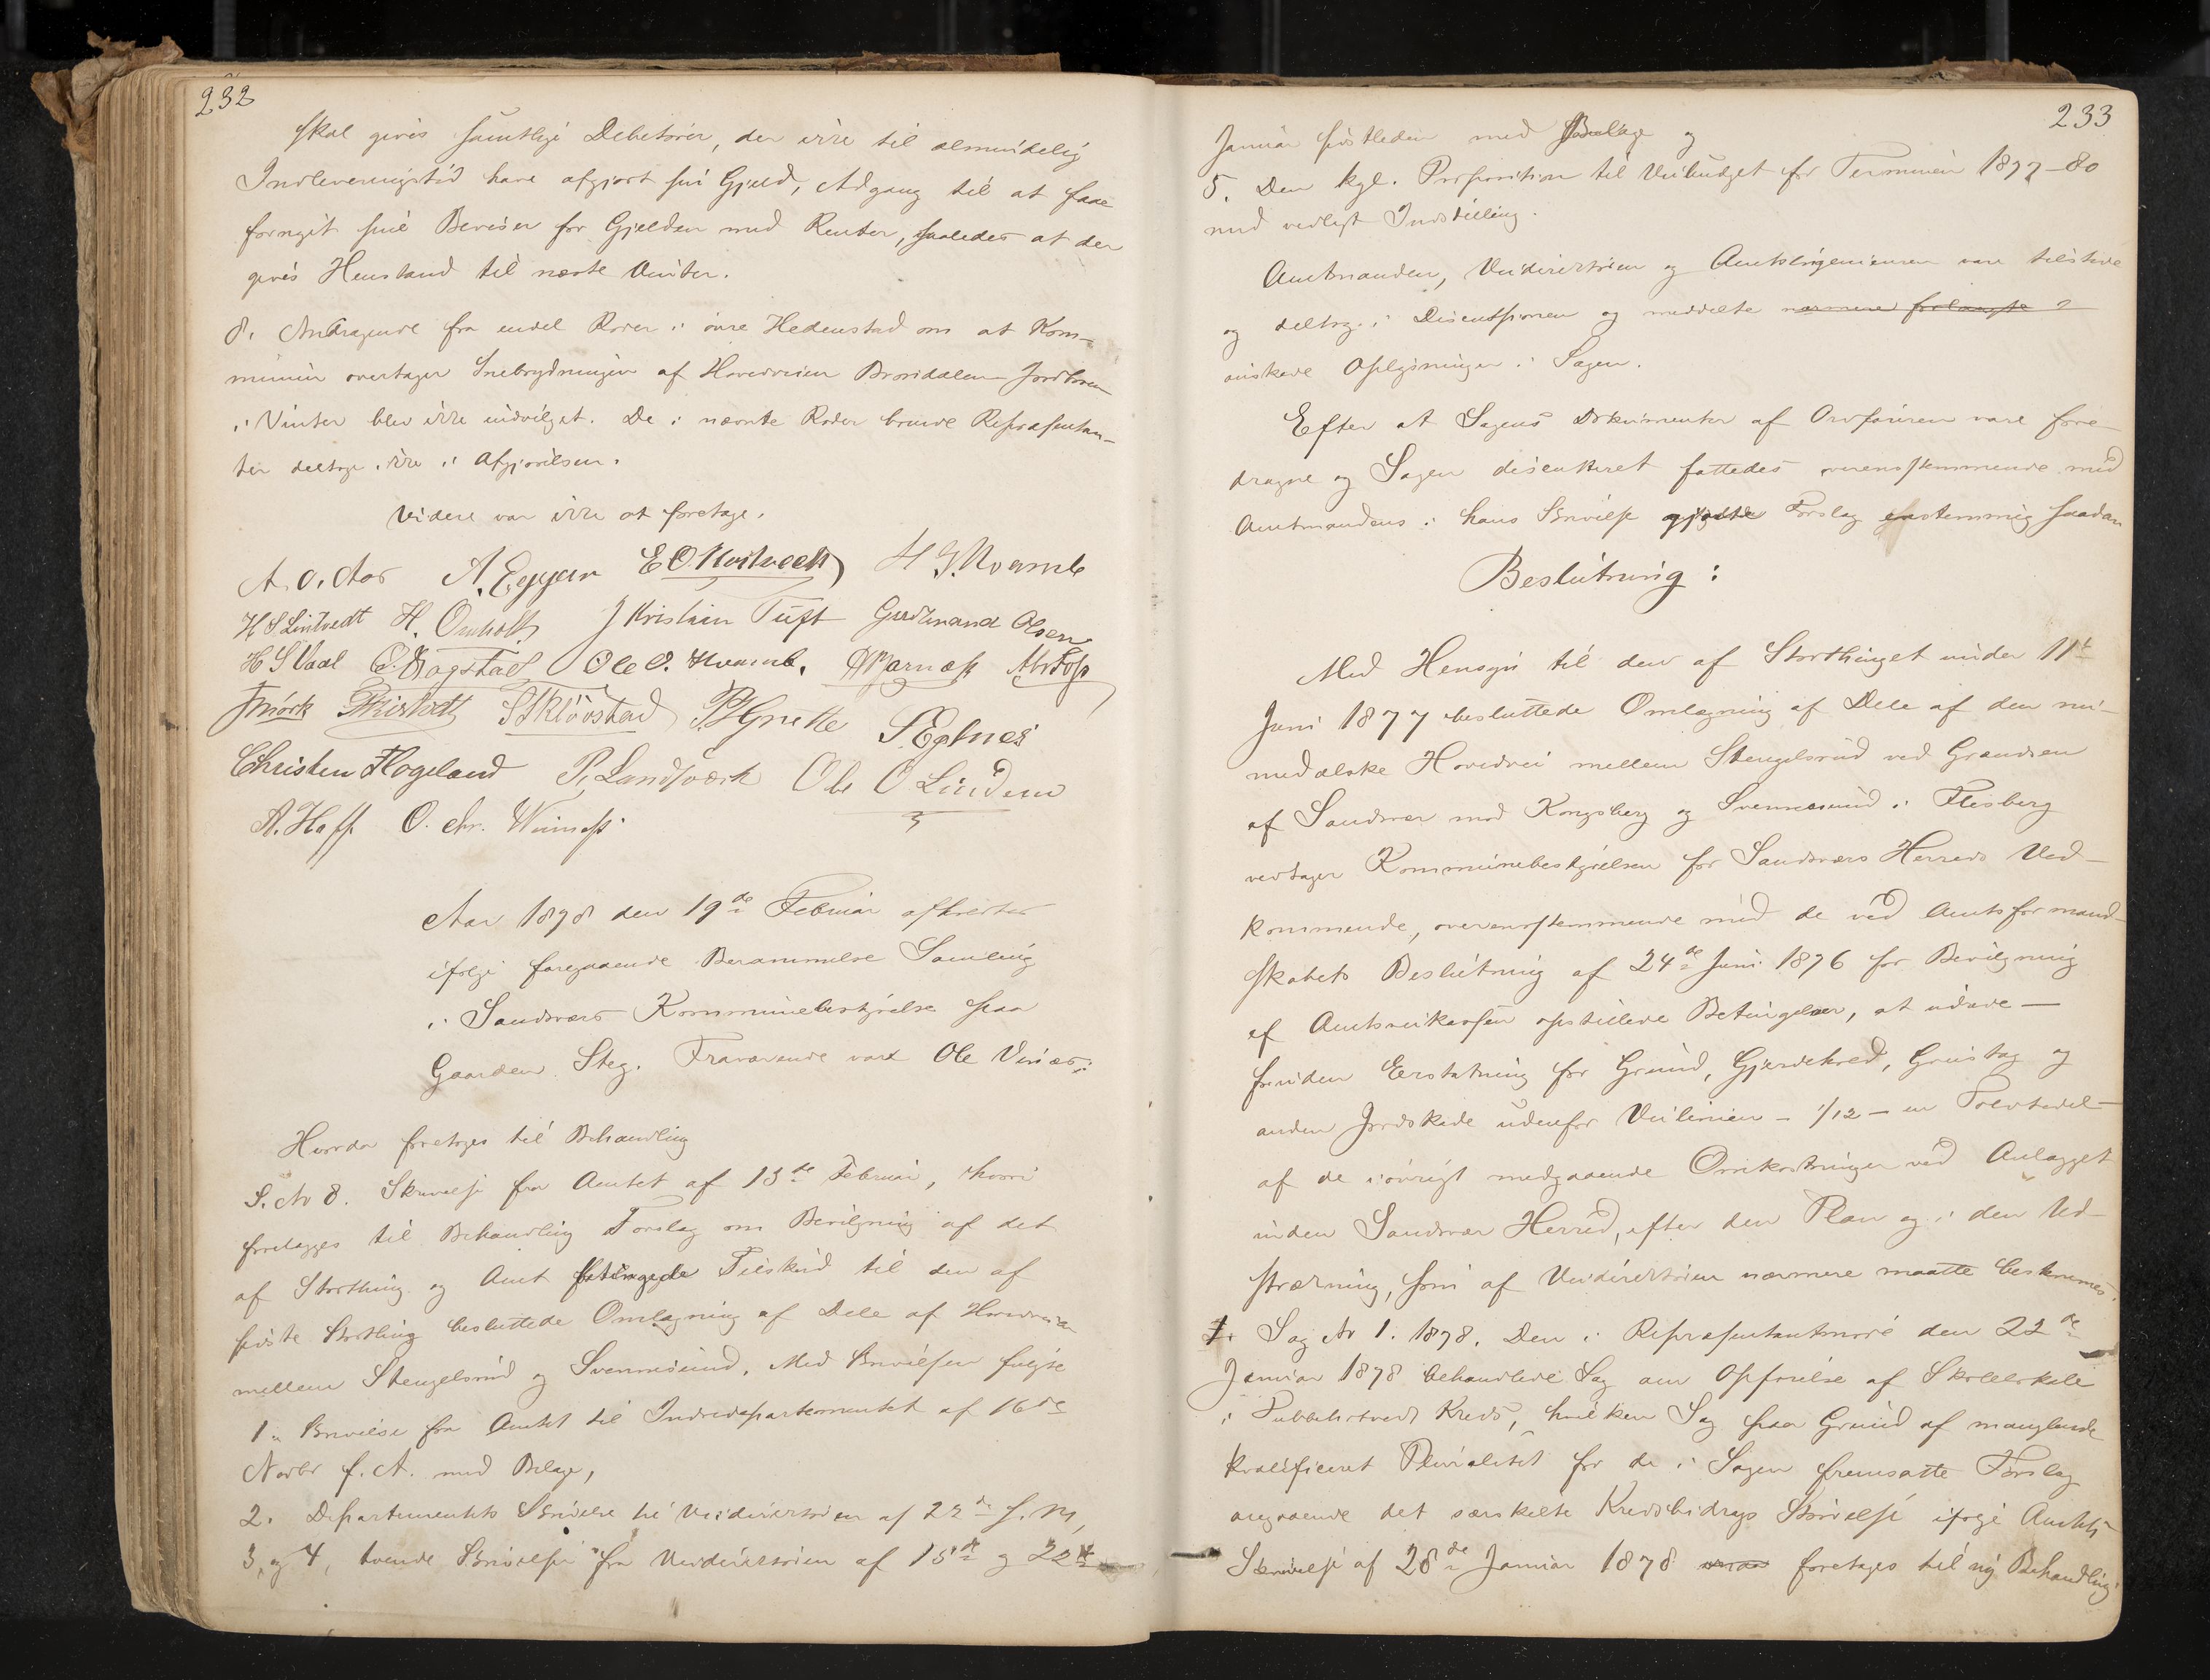 232
skal gives samtlige Debitorer, der ikke til almindelig
Indleveringstid have afgjort sin Gjeld, Adgang til at faae
fornyet sine Beviser for Gjelden med Renter, saaledes at der
gives Henstand til næste Vinter.
8. Andragende fra endel Roder i øvre Hedenstad om at Kom-
munen overtager Snebrydningen af Hovedveien
i Vinter blev ikke indvilget. De i nævnte Roder boende Repræsentan-
ter deltog ikke i Afgjørelsen.
Videre var ikke at foretage.
A. O. Aas A. Eggar E O Kostvedt H G. Kvamb
H S Lintvedt H. Omholt J Kristian Tuft Gudbrand Olsen
H S Vaal C. Bagstad Ole O. Kvamb. A Bjørnass
J Mørk S Kløvstad P H Grette S. Egknes
Christen Hogeland P. Landsværk Ole O Linden
A. Hoff O. Chr. Wiirness
Aar 1878 den 19de Februar afholdtes
ifølge foregaaende Berammelse Samling
i Sandsværs Kommunebestyrelse paa
Gaarden Steg. Fraværende var Ole Vinæs.
Hvorda foretoges til Behandling
S. No 8. Skrivelse fra Amtet af 13de Februar, hvori
forelægges til Behandling Forslag om Bevilgning af det
af Storthing og Amt betingede Tilskud til den af
sidste Storthing besluttede Omlægning af Dele af Hovedveien
mellem Stengelsrud og Svennesund. Med Skrivelsen fulgte
1. Skrivelse fra Amtet til Indredepartementet af 16de
Novbr f. A. med Bilage,
2. Departementets Skrivelse til Veidirektøren af 22de s. M,
3, og 4, tvende Skrivelser fra Veidirektøren af 15de og 22de
233
Januar sidstleden med Bilage og
5. Den kgl. Proposition til Veibudget for Terminen 1877-80
med vedlagt Indstilling.
Amtmanden, Veidirektøren og Amtsingeniøren vare tilstede
og deltog i Discussionen og meddelte nærmere forlangte
ønskede Oplysninger i Sagen.
Efter at Sagens Dokumenter af Ordføreren vare fore-
dragne og Sagen discuteret fattedes overensstemmende med
Amtmandens i hans Skrivelse gjorte Forslag enstemmig saadan
Beslutning:
Med Hensyn til den af Storthinget under 11te
Juni 1877 besluttede Omlægning af Dele af den nu-
medalske Hovedvei mellem Stengelsrud ved Grændsen
af Sandsvær mod Kongsberg og Svennesund i Flesberg
vedtager Kommunebestyrelsen for Sandsværs Herred Ved-
kommende, overensstemmende med de ved Amtsformand-
skabets Beslutning af 24de Juni 1876 for Bevilgning
af Amtsveikassen opstillede Betingelser, at udrede –
foruden Erstatning for Grund, Gjerdehold, Grustag og
anden Jordskade udenfor Veilinien – 1/12 – en Tolvtedel –
af de iøvrigt medgaaende Omkostninger ved Anlægget
inden Sandsvær Herred, efter den Plan og i den Ud-
strækning, som af Veidirektøren nærmere maatte bestemmes.
Sag No 1. 1878. Den i Repræsentantmøde den 22de
Januar 1878 behandlede Sag om Opførelse af Skolelokale
i Kreds, hvilken Sag paa Grund af manglende
kvalificeret Pluralitet for de i Sagen fremsatte Forslag
angaaende det særskilte Kredsbidrags Størrelse ifølge Amtets
Skrivelse af 28de Januar 1878 foretages til ny Behandling